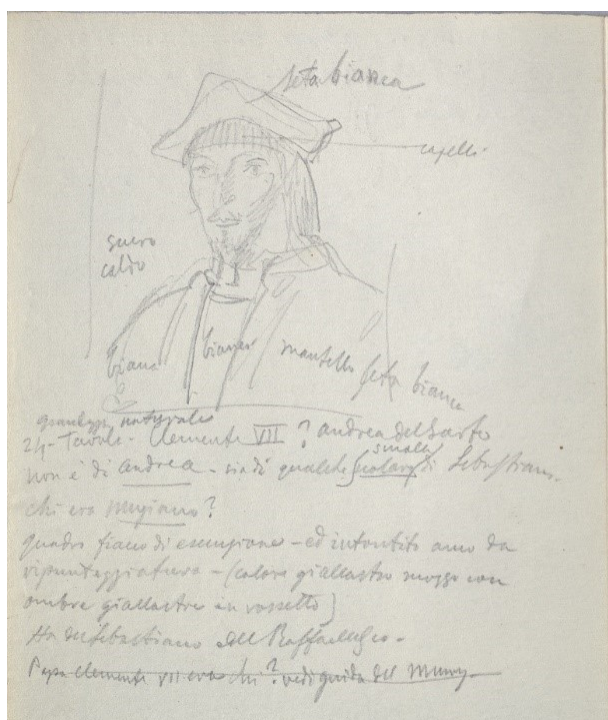 seta bianca
capelli
scuro
caldo
bianca
mantello seta bianca
grandezza naturale
24 - Tavola - Clemente VII? Andrea del Sarto
non è di Andrea - sia di qualche scolaro di Sebastiano.
chi era Mugiano?
quadro fiacco di esecuzione - ed intontito
(colore giallastro
ombre giallastre in rossetto)
Ha del Sebastiano
Papa Clemente VII era chi? vedi guida del